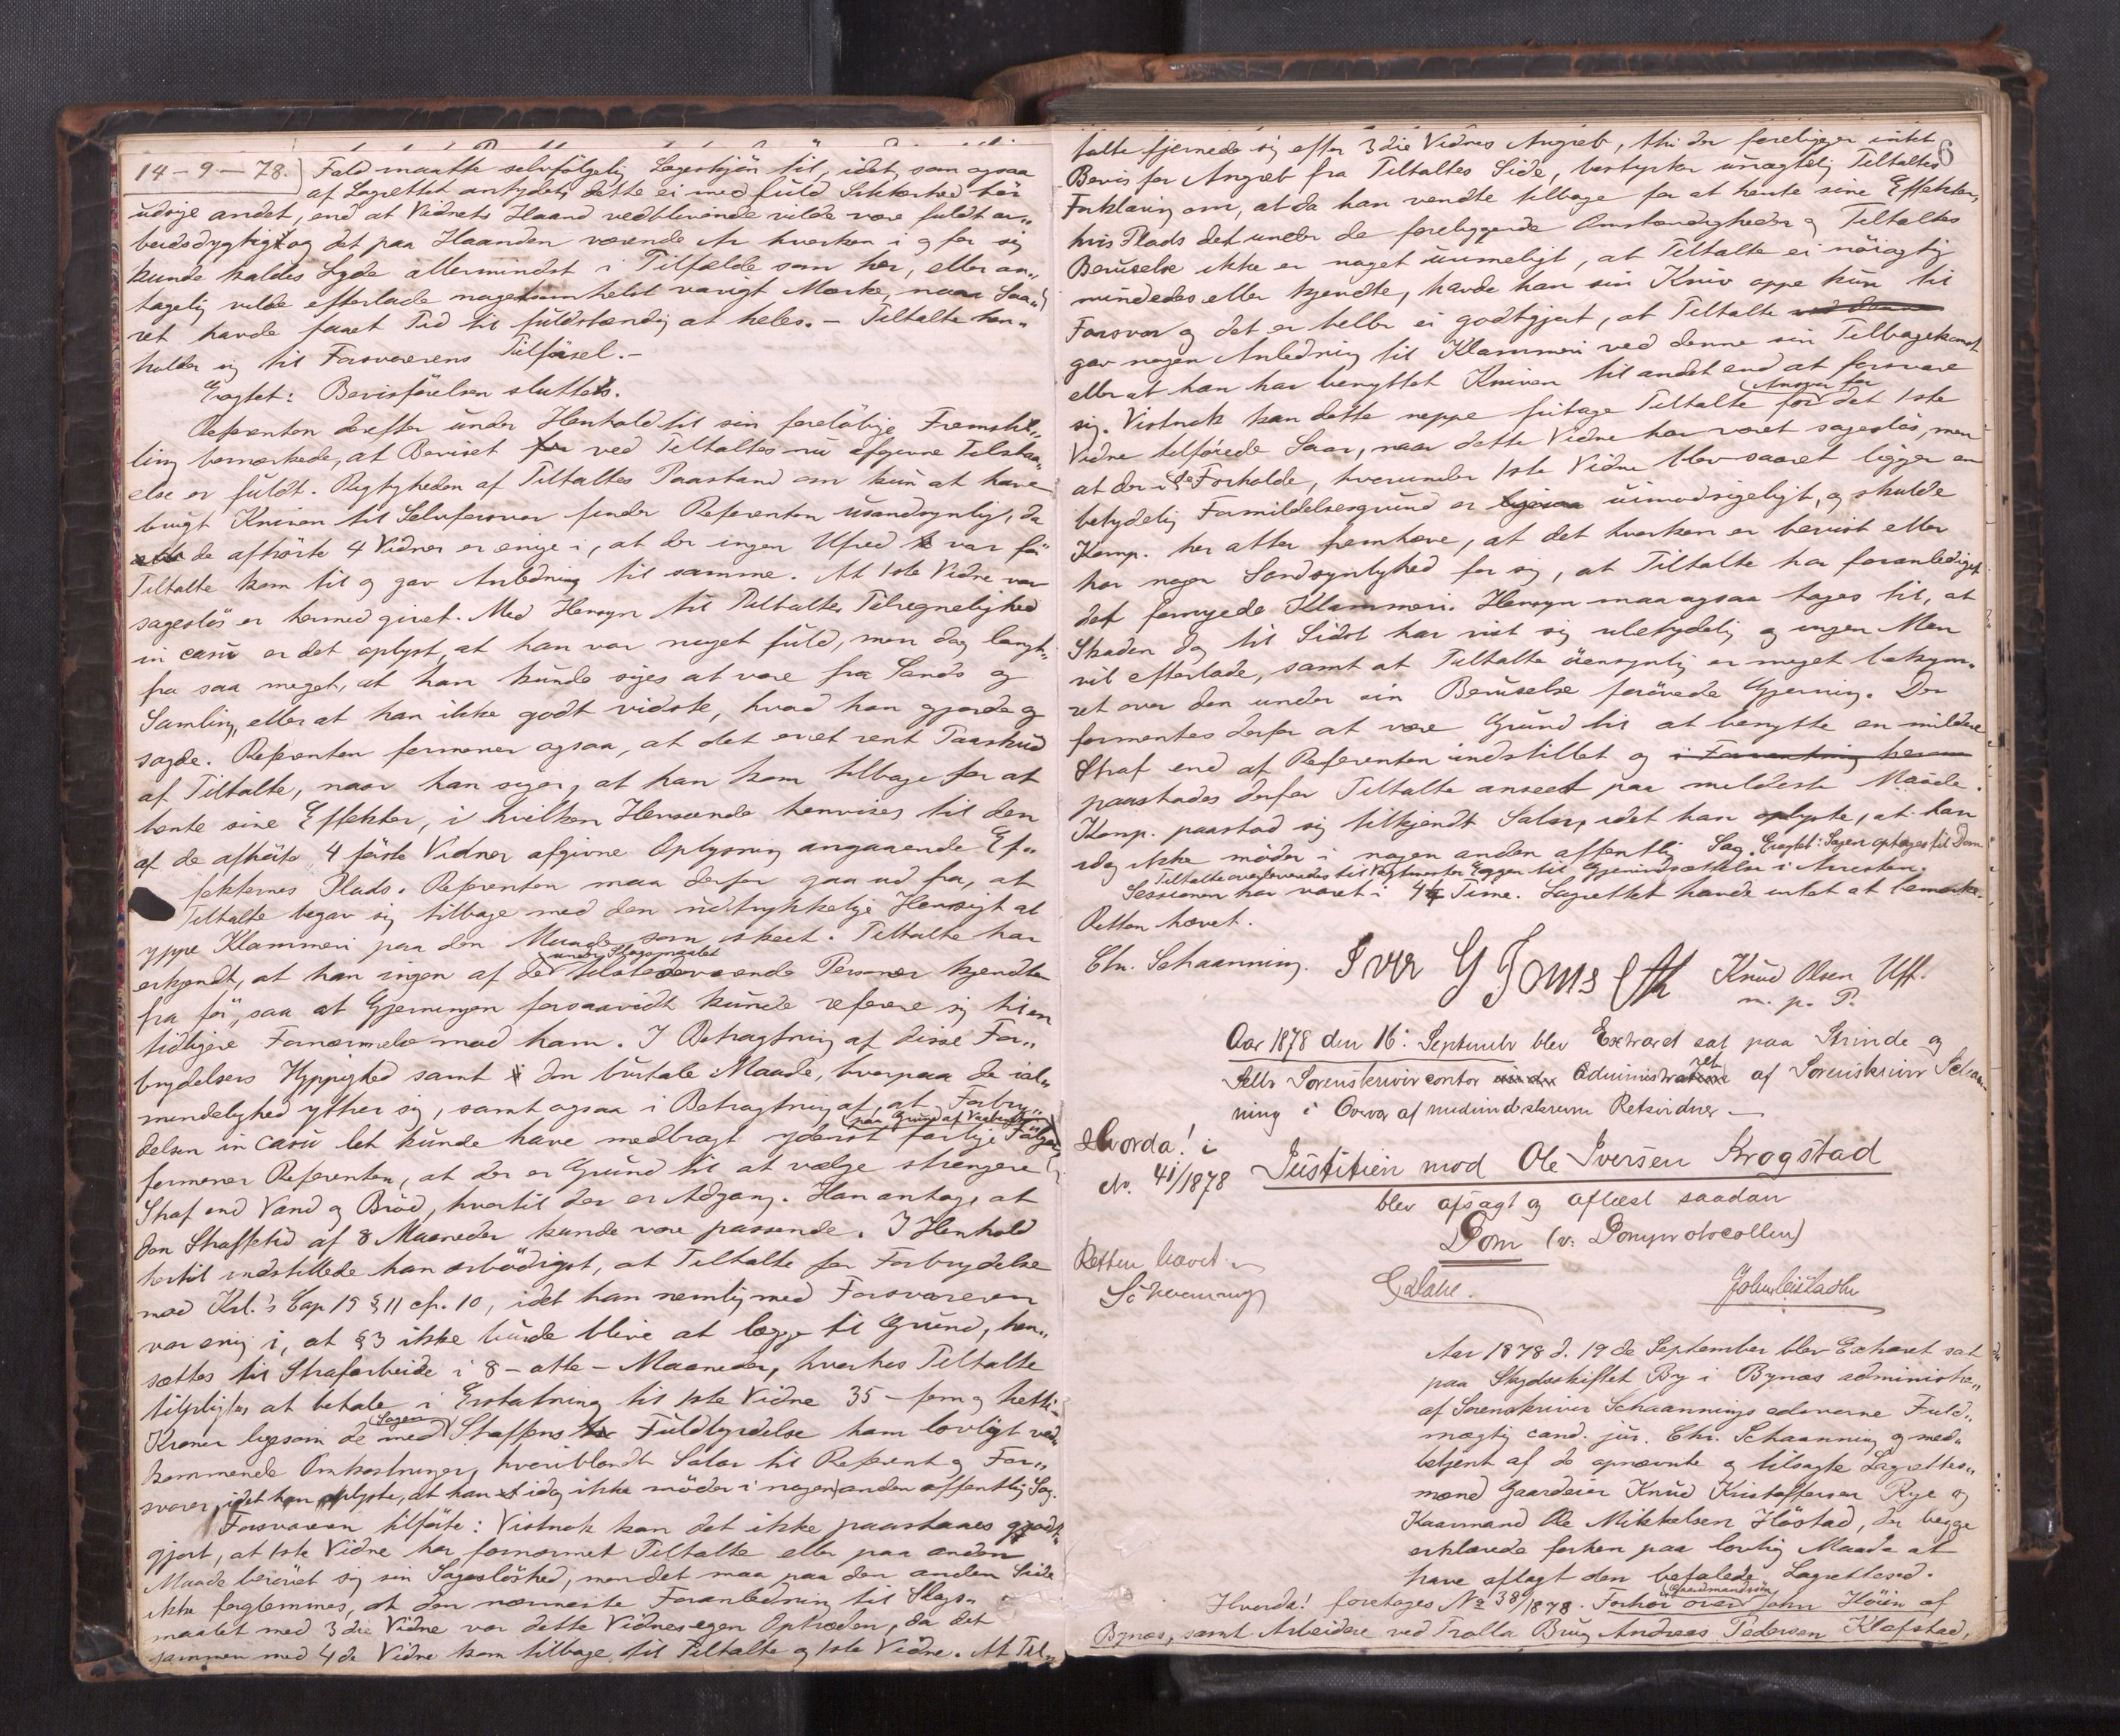 14-9-78. Fald maatte selvfølgelig Lageskjøn til, idet, som ogsaa
af Lagrettet antydet, dette ei med fuld Sikkerhed tør
udsige andet, end at Vidnets Haand vedblivende vilde være fuldt ar„
beidsdygtigt og det paa Haanden værende Ar hverken i og for sig
kunde kaldes Lyde allermindst i Tilfælde som her, eller an„
tagelig vilde efterlade nogetsomhelst varigt Mærke, naar Saa„
ret havde faaet Tid til fuldstændig at heles. - Tiltalte hen„
holder sig til Forsvarerens Tilførsel.-
Eragtet: Bevisførelsen sluttes.
Referenten derefter under Henhold til sin foreløbige Fremstil„
ling bemærkede, at Beviset ved Tiltaltes nu afgivne Tilstaa„
else er fuldt. Rigtigheden af Tiltaltes Paastand om kun at have
brugt Kniven til Selvforsvar finder Referenten usandsynlig, da
de afhørte 4 Vidner er enige i, at der ingen Ufred var før
Tiltalte kom til og gav Anledning til samme. At 1ste Vidne var
sagesløs er hermed givet. Med Hensyn til Tiltaltes Tilregnelighed
in casu er det oplyst, at han var noget fuld, men dog langt„
fra saa meget, at han kunde siges at være fra Sands og
Samling, eller at han ikke godt vidste, hvad han gjorde og
sagde. Referenten formener ogsaa, at det er et rent Paaskud
af Tiltalte, naar han siger, at han kom tilbage for at
hente sine Effekter, i hvilken Henseende henvises til den
af de afhørte 4 første Vidner afgivne Oplysning angaaende Ef„
fekternes Plads. Referenten maa derfor gaa ud fra, at
Tiltalte begav sig tilbage med den udtrykkelige Hensigt at
yppe Klammeri paa den Maade, som skeet. Tiltalte har
erkjendt, at han ingen af de under Slagsmaalet tilstedeværende Personer kjendte
fra før, saa at Gjerningen forsaavidt kunde referere sig til en
tidligere Fornærmelse mod ham. I Betragtning af disse For„
brydelsers Hyppighed samt den brutale Maade, hvorpaa de i al„
mindelighed yttrer sig, samt ogsaa i Betragtning af, at Forbry„
delsen in casu let kunde have medbragt yderst farlige Følger,
formener Referenten, at der er Grund til at vælge strengere
Straf end Vand og Brød, hvortil der er Adgang. Han antog, at
den Straffetid af 8 Maaneder kunde være passende. I Henhold
hertil indstillede han ærbødigst, at Tiltalte for Forbrydelse
mod Krl.'s Cap 15 § 11 cfr. 10, idet han nemlig med Forsvareren
var enig i, at § 3 ikke burde blive at lægge til Grund, hen„
sættes til Strafarbeide i 8 - otte - Maaneder, hvorhos Tiltalte
tilpligtes at betale i Erstatning til 1ste Vidne 35 - fem og tretti -
Kroner ligesom de med Sagen Straffens Fuldbyrdelse ham lovligt ved„
kommende Omkostninger, hvoriblandt Salær til Referent og For„
svarer, idet han oplyste, at han idag ikke møder i nogen anden offentlig Sag.
Forsvareren tilførte: Vistnok kan det ikke paastaaes godt„
gjort, at 1ste Vidne har fornærmet Tiltalte eller paa anden
Maade berøvet sig sin Sagesløshed, men det maa paa den anden Side
ikke forglemmes, at den nærmeste Foranledning til Slags„
maalet med 3die Vidne var dette Vidnes egen Optræden, da det
sammen med 4de Vidne kom tilbage til Tiltalte og 1ste Vidne. At Til„
6
talte fjernede sig efter 3die Vidnes Angreb, thi der foreligger intet
Bevis for Angreb fra Tiltaltes Side, bestyrker unægtelig Tiltaltes
Forklaring om, at da han vendte tilbage for at hente sine Effekter,
hvis Plads det under de foreliggende Omstændigheder og Tiltaltes
Beruselse ikke er noget urimeligt, at Tiltalte ei nøiagtig
mindedes eller kjendte, havde han sin Kniv oppe kun til
Forsvar og det er heller ei godtgjort, at Tiltalte
gav nogen Anledning til Klammeri ved denne sin Tilbagekomst
eller at han har benyttet Kniven til andet end at forsvare
sig. Vistnok kan dette neppe fritage Tiltalte Ansvar for det 1ste
Vidne tilførede Saar, naar dette Vidne har været sagesløs, men
at der i de Forholde, hvorunder 1ste Vidne blev saaret ligger en
betydelig Formildelsesgrund er uimodsigeligt, og skulde
Komp. her atter fremhæve, at det hverken er bevist eller
har nogen Sandsynlighed for sig, at Tiltalte har foranlediget
det fornyede Klammeri. Hensyn maa ogsaa tages til, at
Skaden dog til Sidst har vist sig ubetydelig og ingen Men
vil efterlade, samt at Tiltalte øiensynlig er meget bekym„
ret over den under sin Beruselse forøvede Gjerning. Der
formentes derfor at være Grund til at benytte en mildere
Straf end af Referenten indstillet og i Forventning herom
paastodes derfor Tiltalte anseet paa mildeste Maade.
Komp. paastod sig tilkjendt Salær, idet han oplyste, at han
idag ikke møder i nogen anden offentlig Sag. Eragtet: Sagen optages til Dom.
Tiltalte overleveredes til Vagtmester Eggen til Gjenindsættelse i Arresten.
Sessionen har varet i 4 Time. Lagrettet havde intet at bemærke.
Retten hævet.
Chr. Schaanning. Iver Knud Olsen Uff.
m. p. P.
Aar 1878 den 16. September blev Extraret sat paa Strinde og
Selbu Sorenskrivercontor administreret af Sorenskriver Schaan
ning i Overvær af medunderskrevne Retsvidner -
Hvorda! i
No. 41/1878 Justitien mod Ole Iversen Krogstad
blev afsagt og aflæst saadan
Dom (v. Domsprotocollen)
Retten hævet.
Schaanning
Aar 1878 d. 19de September blev Extraret sat
paa Skydsskiftet By i Bynæs administre„
af Sorenskriver Schaannings edsvorne Fuld„
mægtig cand. jur. Chr. Schaanning og med„
betjent af de opnævnte og tilsagte Lagrettes„
mænd Gaardeier Knud Kristoffersen Rye og
Kaarmand Ole Mikkelsen Høstad, der begge
erklærede forhen paa lovlig Maade at
have aflagt den befalede Lagrettesed.
Hvorda! foretoges No 38/1878. Forhør over Gaardmandssøn John Høiem af
Bynæs, samt Arbeider ved Trolla Brug Andreas Pedersen Klefstad,